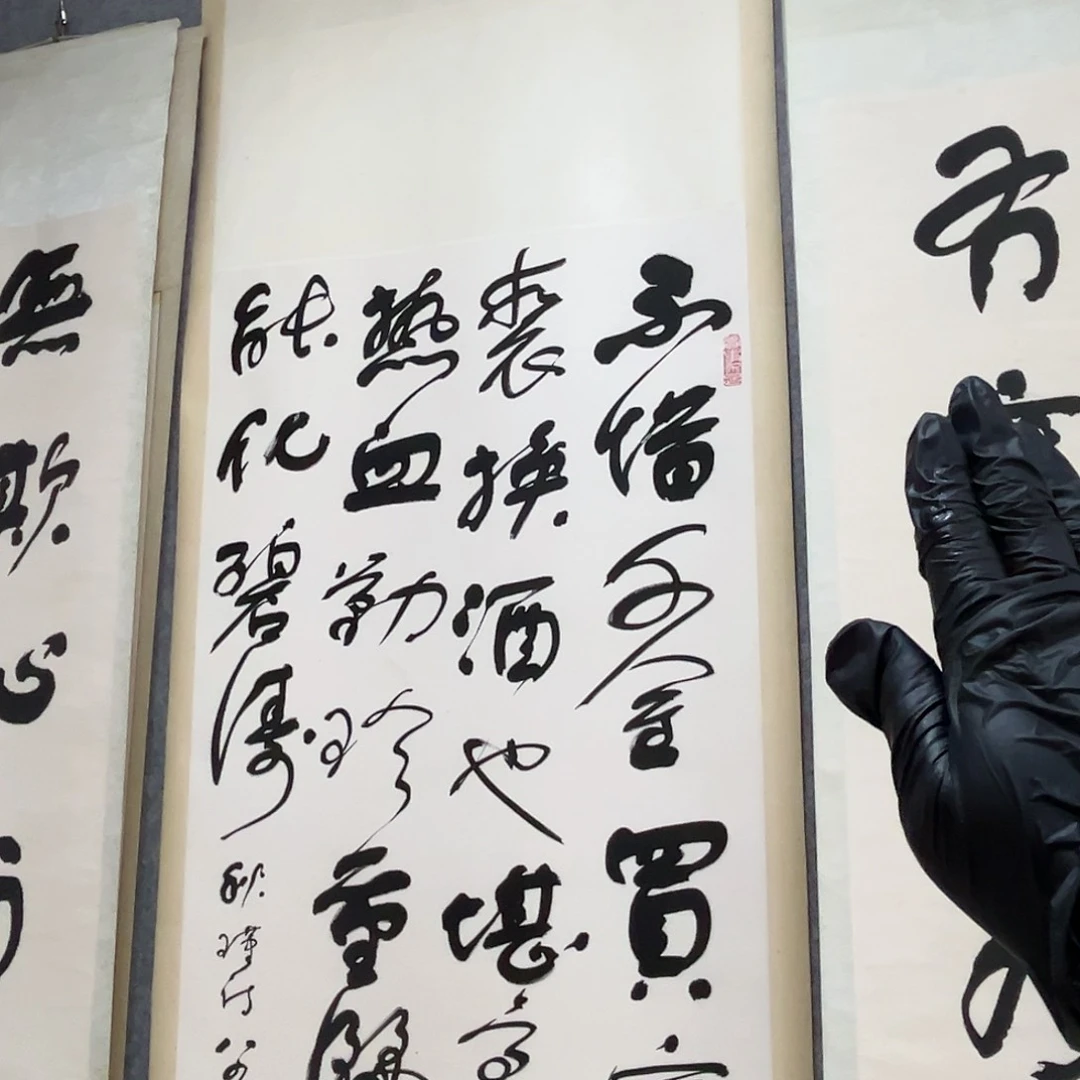 不惜千金買
裘換酒也堪豪
熱血勤珍重
能化碧濤
秋瑾
無欺心